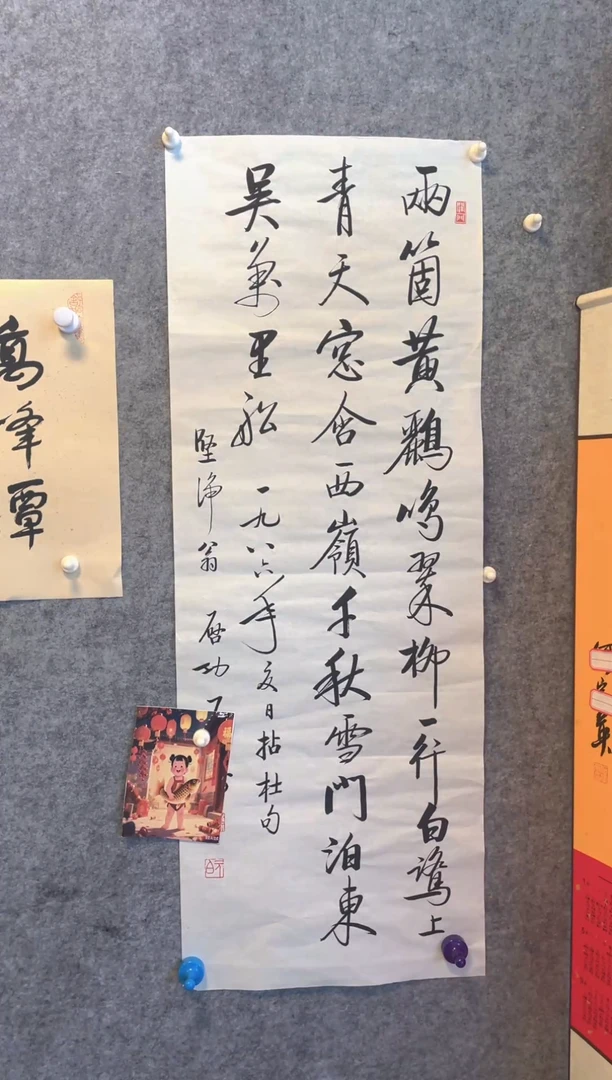 兩箇黃鸝鳴翠柳一行白鷺上
青天窓含西嶺千秋雪門泊東
吳萬里舩 一九八六年夏日拈杜句
堅淨翁 啓功